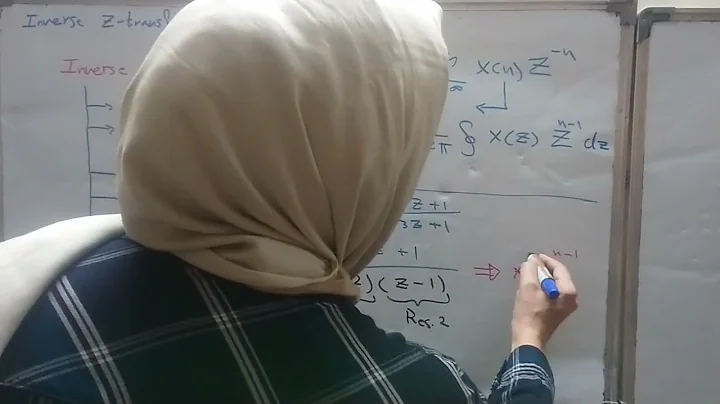 Inverse Z-trans
Inverse
X(n) Z^-n
∮ X(z) Z^n-1 dz
Z + 1
3Z + 1
+ 1
2) (Z - 1)
⇒ X n-1
Res. 2